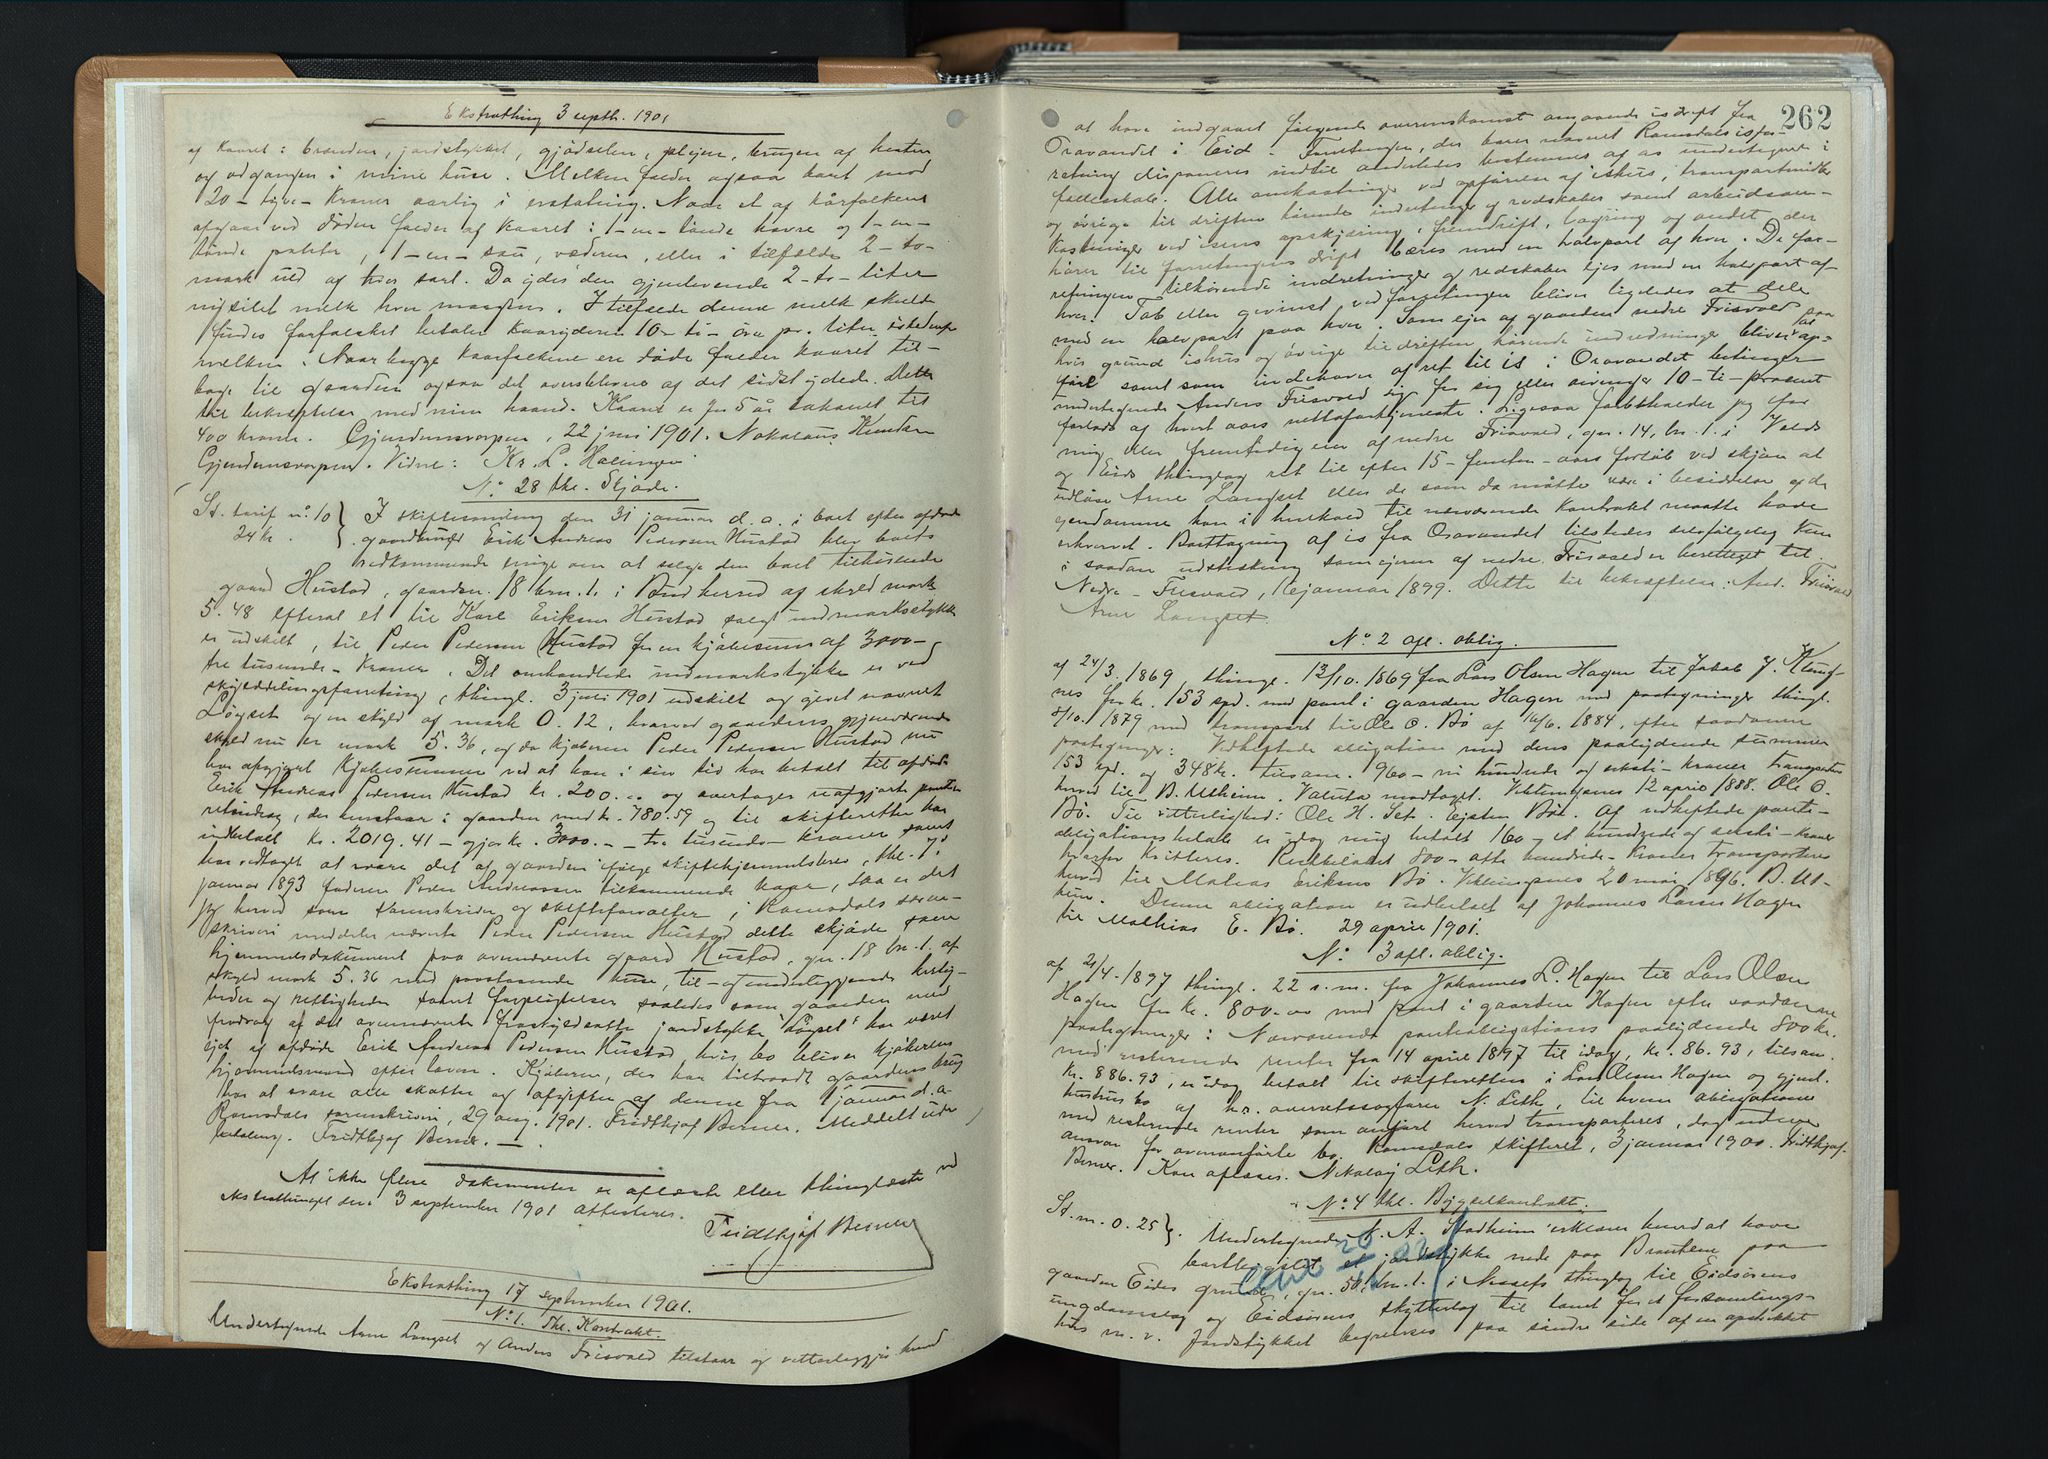 Ekstrathing 3 septbr. 1901
af kaaret: brænden, jordstykket, gjødselen, plejen, brugen af hesten
og adgangen i mine huse. Melken falder ogsaa bort mod
20 - tyve - kroner aarlig i erstatning. Naar et af kårfolkene
afgaar ved døden falder af kaaret: 1 - en - tønde havre og 1 - en -
tønde poteter, 1 - en - sau, væderen, eller i tilfælde 2 - to -
mark uld af hver sort. Da ydes den gjenlevende 2 - to - liter
nysilet melk hver morgen. I tilfælde denne melk skulde
findes forfalsket betaler kaaryderen 10 - ti - øre pr. liter istedenfor
melken. Naar begge kaarfolkene ere døde falder kaaret til-
bage til gaarden ogsaa det overblevne af det sidst ydede. Dette
til bekræftelse med min haand. Kaaret er for 5 år taxeret til
400 kroner. Gjendemsvorpen, 22 juni 1901. Nikolaus Knudsen
Gjendemsvorpen. Vidne: Kr. L. Halinger
No 28 thl. Skjøde.
St. tarif no 10 } I skiftesamling den 31 januar d. a. i boet efter afdøde
24 kr. } gaardbruger Erik Andreas Pedersen Hustad blev boets
vedkommende enige om at selge den boet tilhørende
gaard Hustad, gaardsn. 18 brn. 1. i Bud herred af skyld mark
5. 48 efterat et til Karl Eriksen Hustad solgt indmarksstykke
er udskilt, til Peder Pedersen Hustad for en kjøbesum af 3000 -
tre tusende - kroner. Det omhandlede indmarksstykke er ved
skylddelingsforretning, thingl. 3 juli 1901 udskilt og givet navnet
Løgset og en skyld af mark 0. 12, hvorved gaardens gjenværende
skyld nu er mark 5. 36, og da kjøberen Peder Pedersen Hustad nu
har afgjort kjøbesummen ved at han i sin tid har betalt til afdøde
Erik Andreas Pedersen Hustad kr. 200.00 og overtager uafgjorte pante-
retindrag, der henstaar i gaarden med kr. 780.59 og til skifteretten har
indbetalt kr. 2019. 41 - gjør kr. 3000. - tre tusende - kroner samt
har vedtaget at svare det af gaarden ifølge skiftehjemmelsbrev, thl. 7
januar 1893 faderen Peder Andreassen tilkommende kaar, saa er det
jeg herved som sorenskriver og skifteforvalter i Romsdals soren-
skriveri meddeler nævnte Peder Pedersen Hustad dette skjøde som
hjemmelsdokument paa ovennævnte gaard Hustad, gn. 18 bn. 1. af
skyld mark 5. 36 med paastaaende huse, til- og underliggende herlig-
heder og rettigheder samt forpligtelser saaledes som gaarden med
fradrag af det ovennævnte fraskyldsatte jordstykke "Løgset" har været
ejet af afdøde Erik Andreas Pedersen Hustad, hvis bo bliver kjøberens
hjemmelsmand efter loven. Kjøberen, der har tiltraadt gaardens brug
har at svare alle skatter og afgifter af denne fra 1 januar d. a.
Romsdals sorenskriveri, 29 aug. 1901. Fridthjof Berner. Meddelt uden
betaling. Fridthjof Berner. -
At ikke flere dokumenter er aflæste eller thinglæste ved
ekstrathinget den 3 september 1901 attesteres.
Fridthjof Berner
Ekstrathing 17 september 1901.
No 1. Thl. Kontrakt.
Undertegnede Arne Langset og Anders Frisvold tilstaar og vitterliggjør herved
262
at have indgaaet følgende overenskomst angaaende isdrift fra
Osvandet i Eid. Forretningen, der bærer navnet Romsdals isfor-
retning disponeres indtil anderledes bestemmes af os undertegnede i
fællesskab. Alle omkostninger ved opførelse af ishus, transportmidler
og øvrige til driften hørende indretninger og redskaber samt arbeidsom-
kostninger ved isens opskjæring, fremdrift, lagring og andet der
hører til forretningens drift bæres med en halvpart af hver. De for-
retningen tilhørende indretninger og redskaber ejes med en halvpart af
hver. Tab eller gevinst ved forretningen bliver ligeledes at dele
med en halvpart paa hver. Som ejer af gaarden nedre Frisvold paa
hvis grund ishus og øvrige til driften hørende indredninger bliver at op-
føre samt som indehaver af ret til is i Osvandet betinger
undertegnede Anders Frisvold sig for sig eller arvinger 10 - ti - procent
forlods af hvert aars nettofortjeneste. Ligesaa forbeholder jeg for
mig eller fremtidig eier af nedre Frisvold, gn. 14, bn. 1. i Volds
og Eids thinglag ret til efter 15 - femten - aars forløb ved skjøn at
udløse Arne Langset eller de som da måtte være i besiddelse af de
ejendomme han i henhold til nærværende kontrakt maatte have
erhvervet. Borttagning af is fra Osvandet tilstedes selvfølgelig kun
i saadan udstrækning som ejeren af nedre Frisvold er berettiget til.
Nedre - Frisvold, januar 1899. Dette til bekræftelse: And. Frisvold
Arne Langset.
No 2 afl. oblig.
af 24/3. 1869, thingl. 13/10. 1869 fra Lars Olsen Hagen til Jakob J. Klung-
nes for kr. 153 spd. med pant i gaarden Hagen med paategninger thingl.
8/10. 1879 med transport til Ole O. Bø af 16/6. 1884, efter saadanne
paategninger: Vedheftede obligation med dens paalydende summer
153 spd. og 348 kr. tilsam. 960 - ni hundrede og seksti - kroner transporteres
herved til B. Utheim. Valuta modtaget. Veblungsnes 12 april 1888. Ole O.
Bø. Til vitterlighed: Ole H. Set. Eysten Bøe. Af vedheftede pant-
obligationsbeløb er idag mig betalt 160 - et hundrede og seksti - kroner
hvorfor kvitteres. Restbeløbet 800 - otte hundrede - kroner transporteres
herved til Matias Eriksen Bø. Veblungsnes 20 mai 1896. B. Ut-
heim. Denne obligation er indbetalt af Johannes Larsen Hagen
til Mathias E. Bø. 29 april 1901.
No 3 afl. oblig.
af 21/4. 1897 thingl. 22 s. m. fra Johannes L. Hagen til Lars Olsen
Hagen for kr. 800.00 med pant i gaarden Hagen efter saadanne
paategninger: Nærværende pantobligations paalydende 800 kr.
med resterende renter fra 14 april 1897 til idag, kr. 86. 93, tilsam.
kr. 886.93, er idag betalt til skifteretten i Lars Olsen Hagen og gjenl.
hustrus bo af hr. overretssagfører N. Leth, til hvem obligationen
med resterende renter som anført herved transporteres, dog uden
ansvar for ovenanførte bo. Romsdals skifteret, 3 januar 1900. Fridthjof
Berner. Kan aflæses. Nikolay Leth.
No 4 thl. Bygselkontrakt.
St. m. 0. 25 }. Undertegnede K. A. Stadheim erklærer herved at have
bortbygslet et jordstykke nede paa Brauten paa
gaarden Eides grund, gn. 50, bn. 1. i Nessets thinglag til Eidsørens
ungdomslag og Eidsørens skytterlag til tomt for et forsamlings-
hus m. v. Jordstykket begrænses paa søndre side af en opstikket